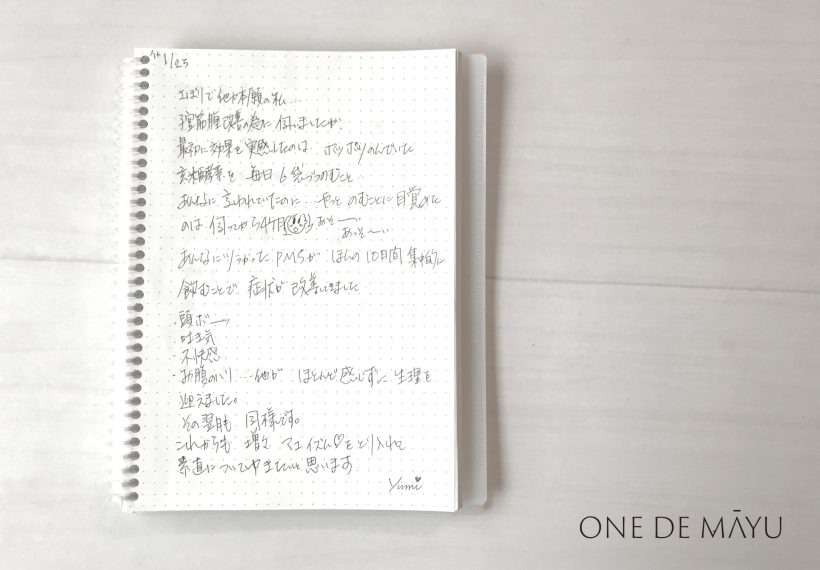 1/25
ずぼらで他力本願の私…
子宮筋腫改善の為に伺いましたが、
最初に効果を実感したのは ポツポツのんでいた
玄米酵素を 毎日6袋づつのむこと
あんなに言われていたのに…やっと のむことに目覚めた
のは 伺ってから4ヶ月 あっそ〜い
あっそ〜い
あんなにツラかった PMSが ほんの10日間 集中的に
飲むことで 症状が改善してました
・頭ボーッ
・吐き気
・不快感
・お腹のハリ …他が ほとんど感じずに 生理を
迎えました。
その翌月も 同様です。
これからも 増々 マユイズム♡をとり入れて
素直についてゆきたいと思います
Yumi♥
ONE DE MĀYU